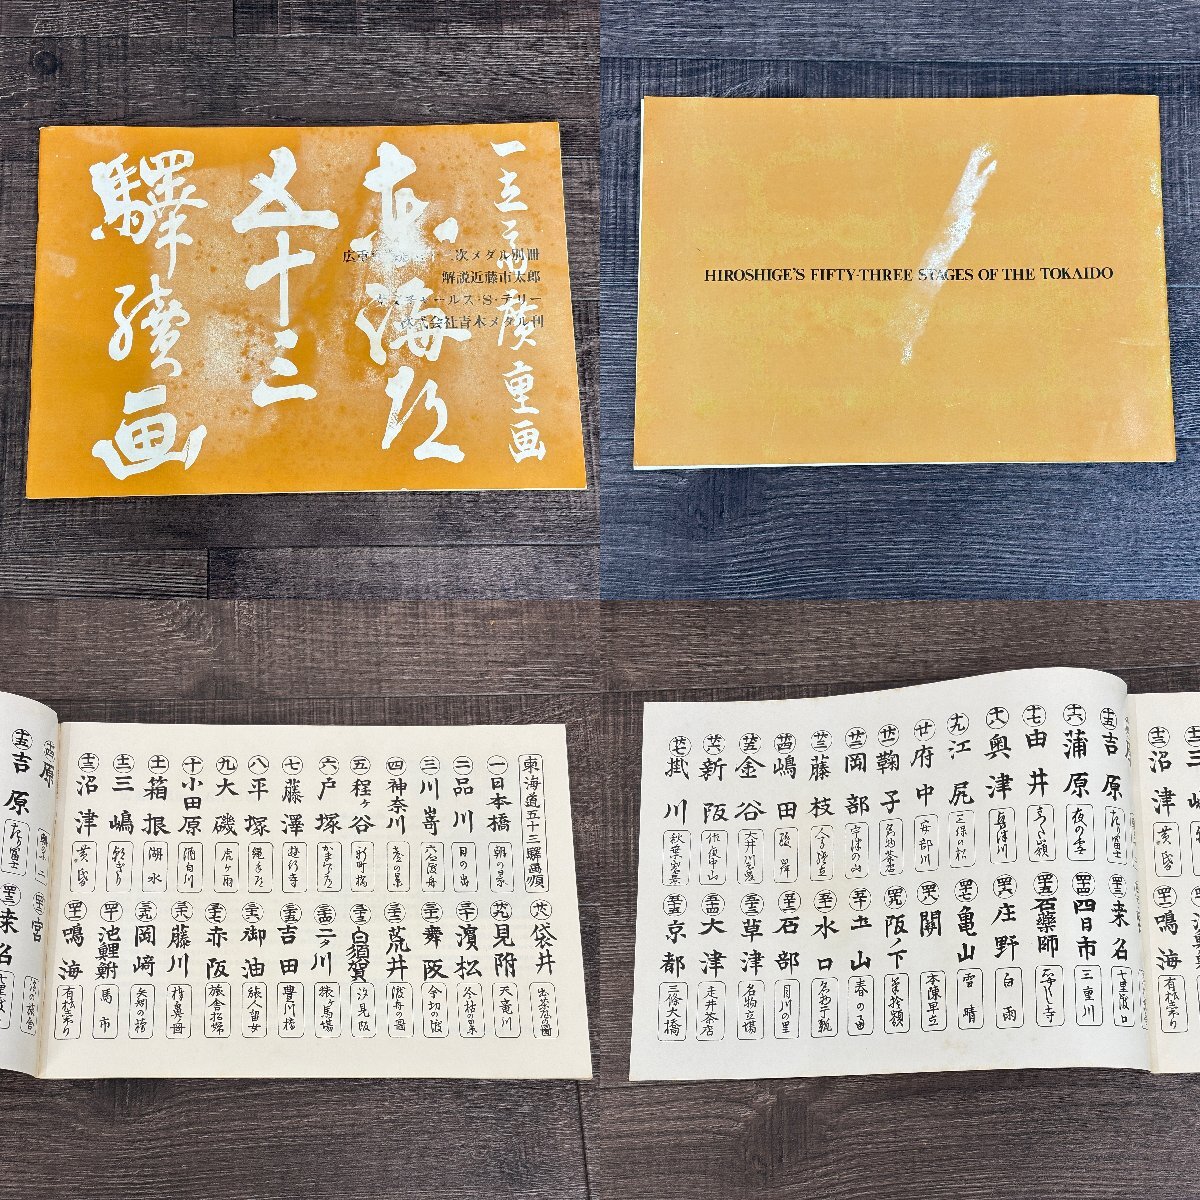 一立斎廣重画
東海道
五十三
驛續画
広重
次メダル別冊
解説近藤市太郎
チャールス・S・テリー
株式会社青木メダル刊
HIROSHIGE'S FIFTY-THREE STAGES OF THE TOKAIDO
東海道五十三驛画順
一 日本橋 朝の景
二 品川 日の出
三 川嵜 六合渡舟
四 神奈川 臺の景
五 程ヶ谷 新町橋
六 戸塚
七 藤澤 遊行寺
八 平塚 縄手道
九 大磯 虎ヶ雨
十 小田原 酒匂川
十一 箱根 湖水
十二 三嶋 朝ぎり
十三 沼津 黄昏
十四 原
十五 吉原
廿八 袋井 出茶屋の圖
廿九 見附 天竜川
三十 濱松 冬枯の景
三十一 舞阪 今切の渡
三十二 荒井 渡舟の圖
三十三 白須賀 汐見阪
三十四 二タ川
三十五 吉田 豊川橋
三十六 御油 旅人留女
三十七 赤阪 旅舎招婦
三十八 藤川 棒鼻ノ圖
三十九 岡﨑 矢矧の橋
四十 池鯉鮒 馬市
四十一 鳴海 有松絞り
宮
四十三 桒名
十五 吉原 左り富士
十六 蒲原 夜の雪
十七 由井
十八 奥津 興津川
十九 江尻
廿 府中 安部川
廿一 鞠子 名物茶店
廿二 岡部 宇津の山
廿三 藤枝 人馬継立
廿四 嶋田
廿五 金谷
廿六 新阪 佐夜中山
廿七 掛川 秋葉遠景
四十三 桒名 七里渡口
四十四 四日市 三重川
四十五 石藥師 石薬師寺
四十六 庄野 白雨
四十七 亀山 雪晴
四十八 關 本陣早立
四十九 阪ノ下 筆捨嶺
五十 土山 春の雨
五十一 水口 名物干瓢
五十二 石部 目川の里
五十三 草津 名物立場
五十四 大津 走井茶店
五十五 京都 三條大橋
原
十三 沼津 黄昏
四十一 鳴海 有松絞り